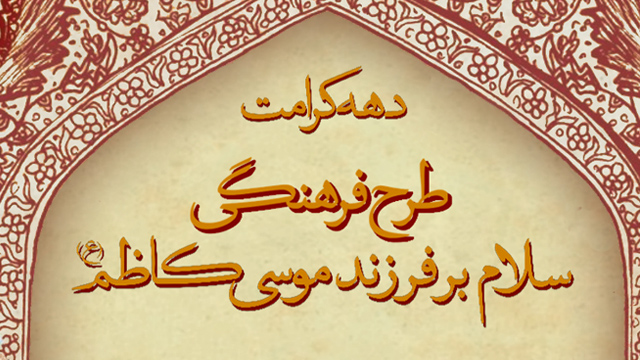 دهه کرامت
طرح فرهنگی
سلام بر فرزند موسی کاظم (ع)